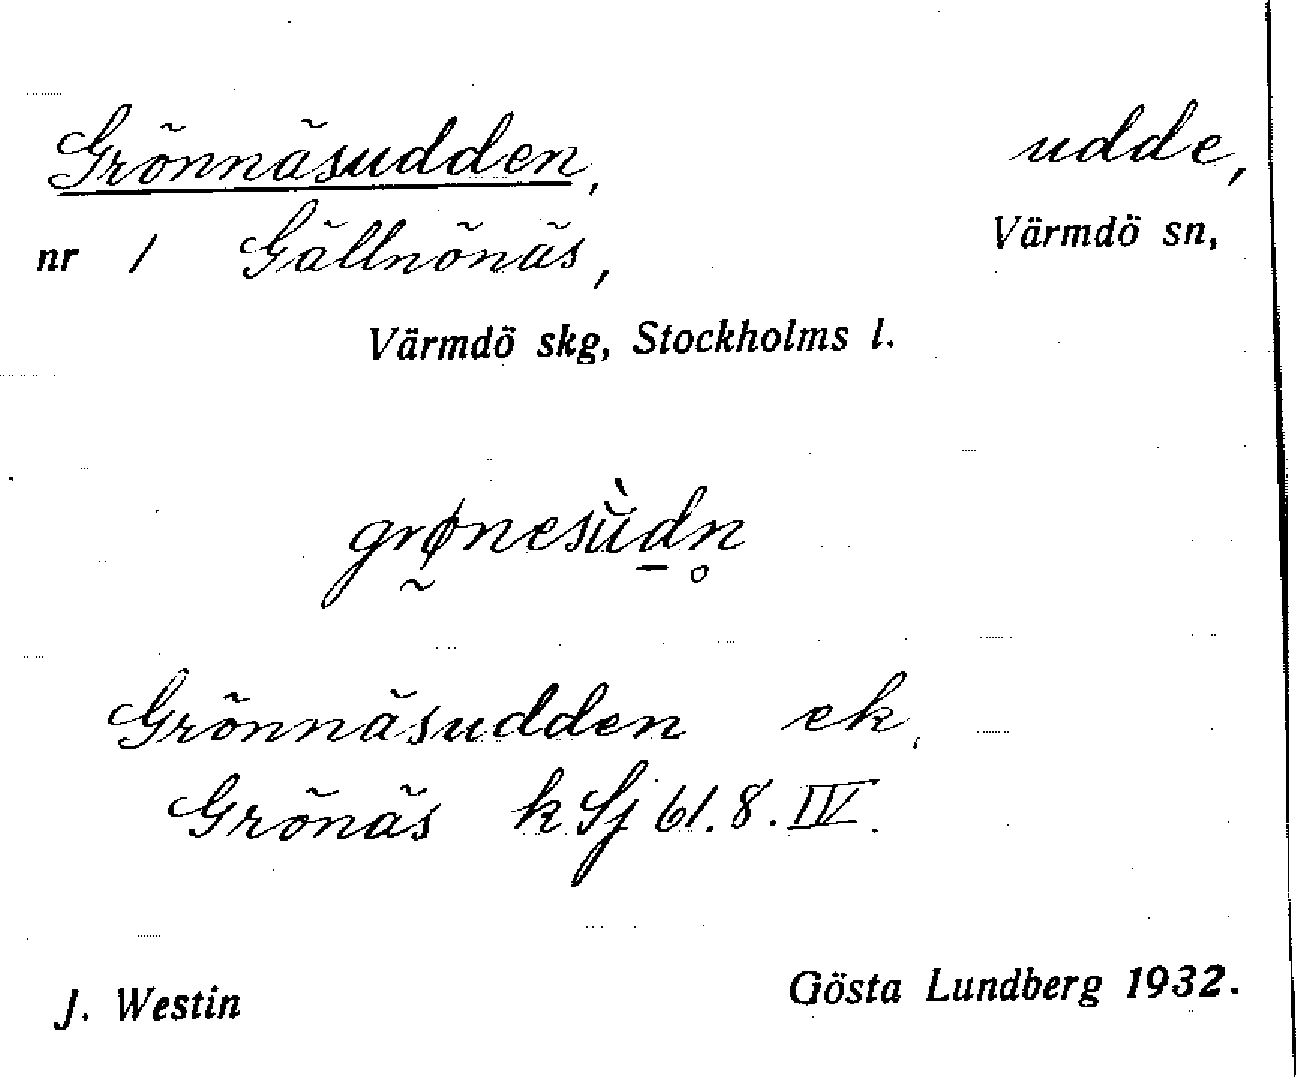 Grönnäsudden, udde,
nr 1 Gällnönäs, Värmdö sn,
Värmdö skg, Stockholms l.
grø̰nesùd̲n̥
Grönnäsudden ek,
Grönäs k Sj 61.8.IV.
J. Westin Gösta Lundberg 1932.